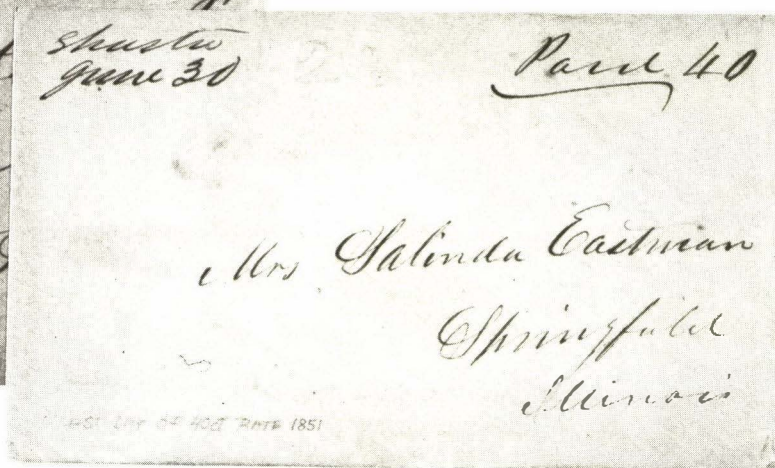 Shasta
June 30
Paid 40
Mrs Salinda Eastman
Springfield
Illinois
LAST DAY OF 40¢ RATE 1851